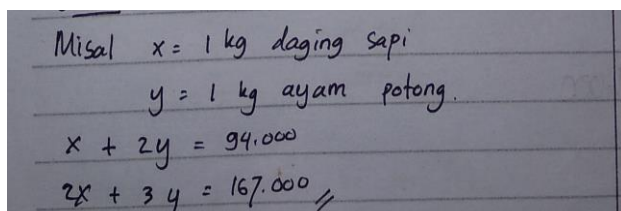 Misal x = 1 kg daging sapi
y = 1 kg ayam potong.
x + 2y = 94.000
2x + 3y = 167.000 //